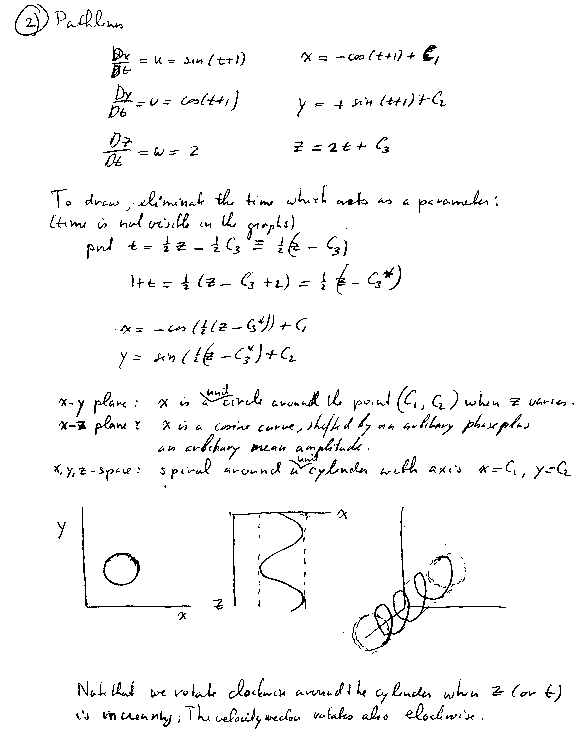 ② Pathlines
Dx/Dt = u = sin(t+1)    x = -cos(t+1) + C₁
Dy/Dt = v = cos(t+1)    y = + sin(t+1) + C₂
Dz/Dt = w = 2    z = 2t + C₃
To draw, eliminate the time which acts as a parameter:
(time is not visible in the graphs)
put t = ½ z - ½ C₃ ≡ ½(z - C₃)
1+t = ½ (z - C₃ + 2) = ½ (z - C₃*)
x = -cos(½(z - C₃*)) + C₁
y = sin(½(z - C₃*) + C₂
x-y plane: x is a unit circle around the point (C₁, C₂) when z varies.
x-z plane: x is a cosine curve, shifted by an arbitrary phase plus
an arbitrary mean amplitude.
x,y,z-space: spiral around a unit cylinder with axis x=C₁, y=C₂
y x
x z
Note that we rotate clockwise around the cylinder when z (or t)
is increasing; The velocity vector rotates also clockwise.